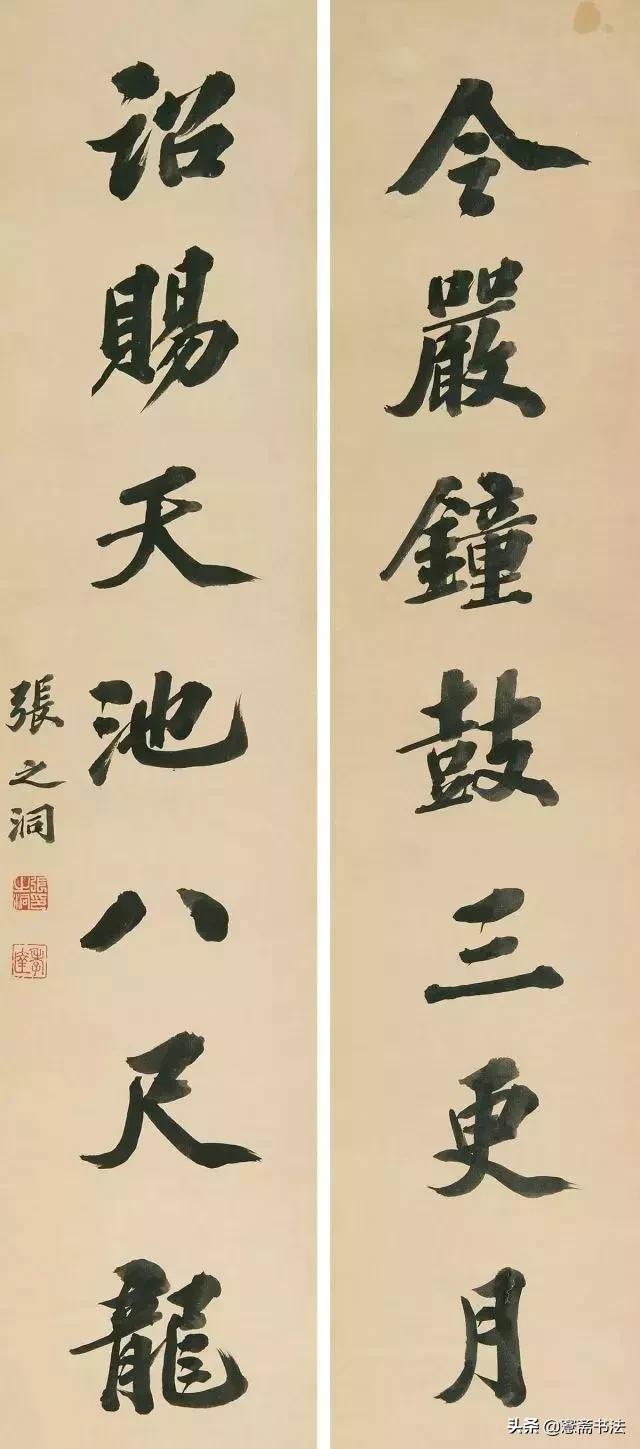 令嚴鐘鼓三更月
詔賜天池八尺龍
張之洞
張之洞印
孝達
头条 @窓斋书法